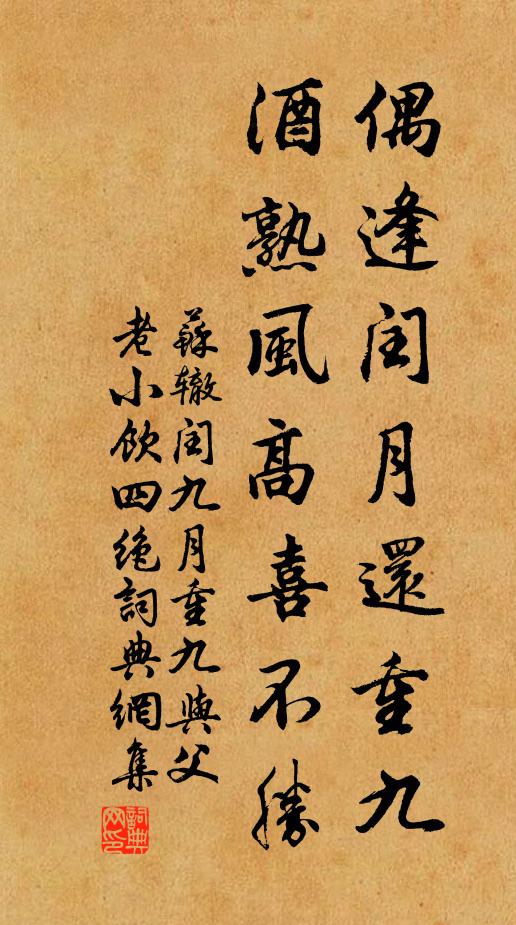 偶逢閏月還重九
酒熟風高喜不勝
蘇轍閏九月重九與父
老小飲四絕詞典網集
詞典
网印